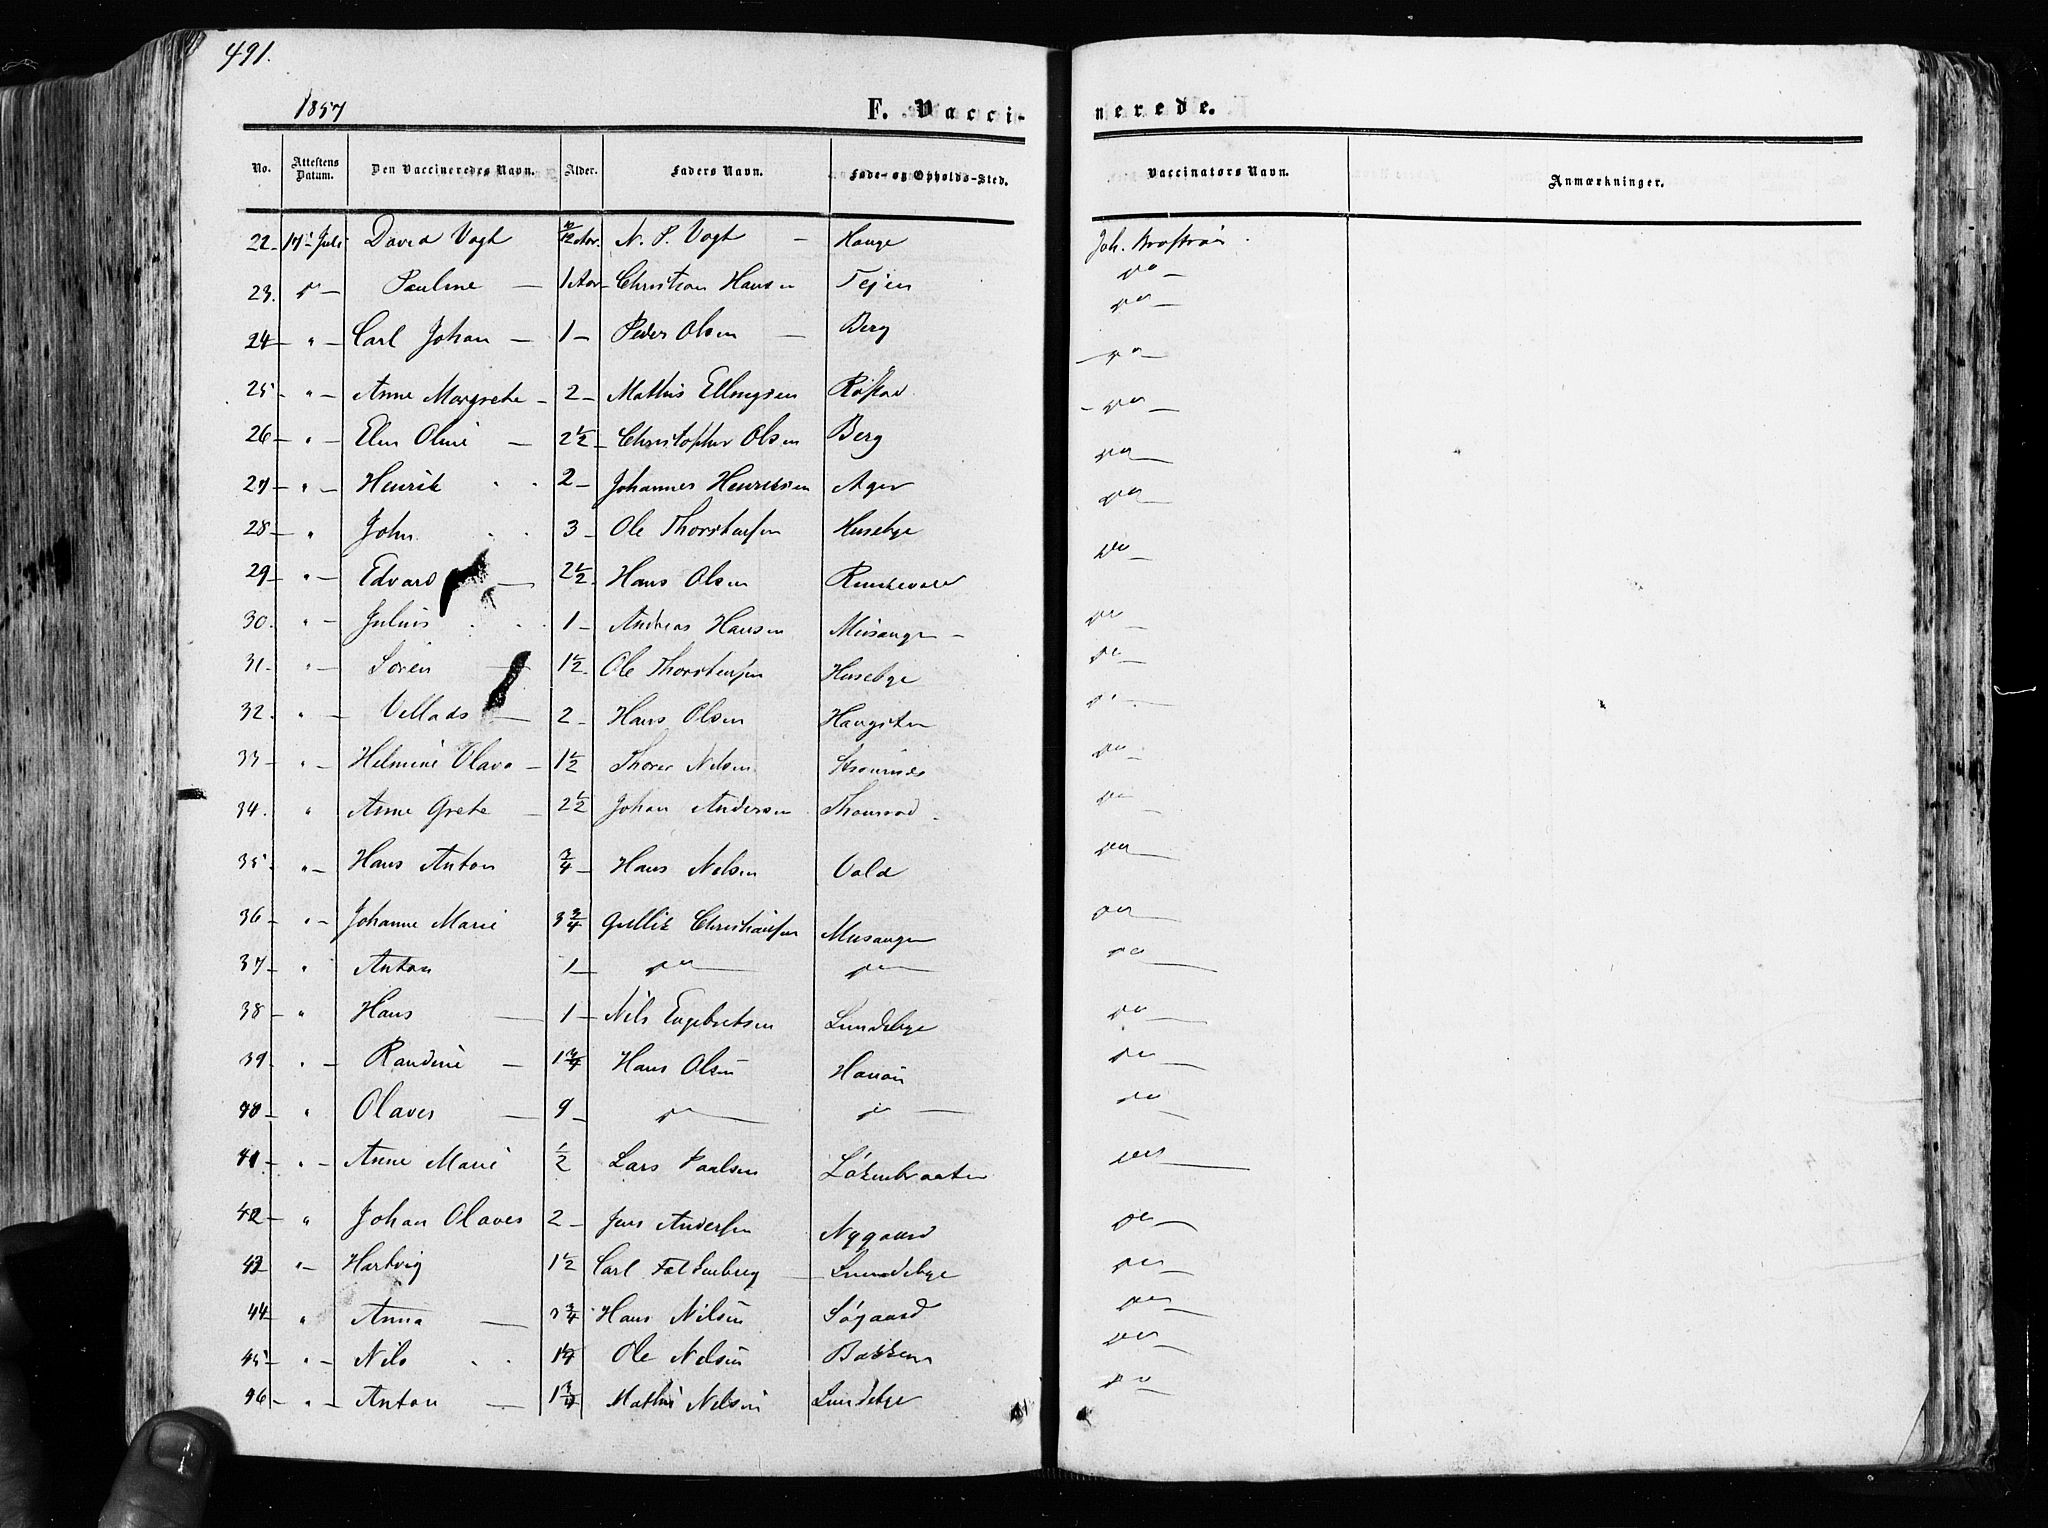 491.
1857
F. Vacci-
nerede.
No. Attestens Datum. Den Vaccineredes Navn. Alder. Faders Navn. Føde- og Opholds-Sted. Vaccinators Navn. Anmærkninger.
22 17 Juli David Vogt N. P. Vogt - Hauge Joh.
23. Pauline - 1 Aar Christian Hansen Tejen
24 " Carl Johan - 1 - Peder Olsen - Berg
25 " - Anne Margrete - 2 - Mathis Ellingsen Røstad
26 - " - Elen Oline - 2 1/2 - Christopher Olsen Berg
27 - " - Henrik 2 - Johannes Henriksen Ager
28 - " - John 3 - Ole Thorstensen Husebye
29 " - Edvard - 2 1/2 Hans Olsen
30. " - Julius 1 - Andreas Hansen Musangen -
31 - " - Soren 1 1/2 Ole Thorstensen Husebye
32. " - Villads - 2 - Hans Olsen Haugsten
33 - " - Helmine Olava - 1 1/2 Thorer Nelsen
34. " Anne Grete - 2 1/2 Johan Andersen
35. " - Hans Anton 3/4 - Hans Nelsen Vold
36 - " - Johanne Marie 3 3/4 Gullik Christiansen Musangen
37 - " Anton 1 -
38 - " Hans - 1 - Nils Engebretsen Lundebye
39 " - Randine - 1 3/4 Hans Olsen
40 - " Olaves - 9 -
41 - " - Anne Marie 1/2 Lars Paalsen Løkenbraaten
42 - " Johan Olaves 2 - Jens Andersen Nygaard
43 " - Hartvig 1 1/2 Carl Falkenberg - Lundebye
44 " Anna - 3/4 Hans Nilsen Søgaard
45 " - Nils Ole Nelsen Bakken
46 - " - Anton - 1 3/4 Mathis Nelsen Lundebye